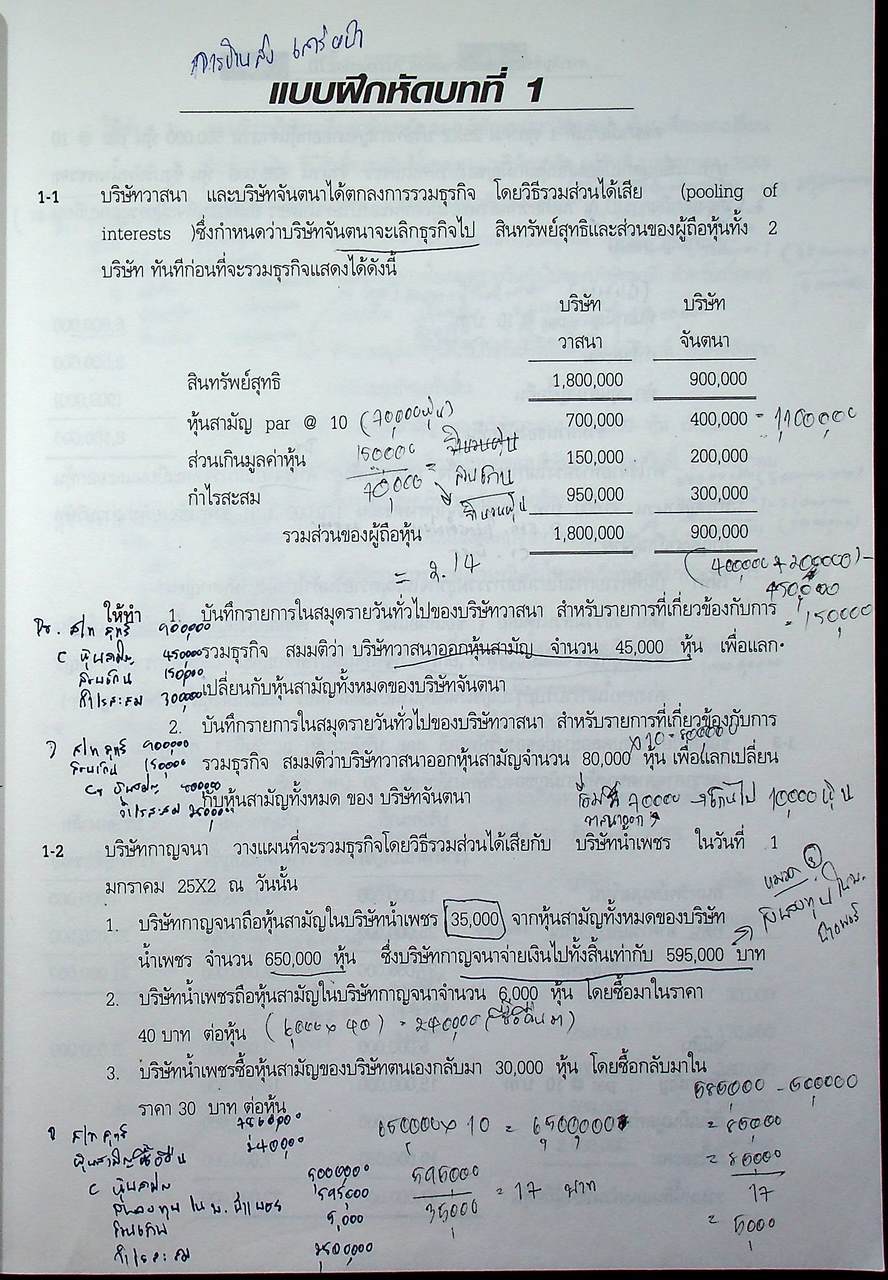 แบบฝึกหัดบทที่ 1
1-1 บริษัทวาสนา และบริษัทจันตนาได้ตกลงการรวมธุรกิจ โดยวิธีรวมส่วนได้เสีย (pooling of
interests )ซึ่งกำหนดว่าบริษัทจันตนาจะเลิกธุรกิจไป สินทรัพย์สุทธิและส่วนของผู้ถือหุ้นทั้ง 2
บริษัท ทันทีก่อนที่จะรวมธุรกิจแสดงได้ดังนี้
บริษัท บริษัท
วาสนา จันตนา
สินทรัพย์สุทธิ 1,800,000 900,000
หุ้นสามัญ par @ 10 (70,000หุ้น) 700,000 400,000 = 1,100,000
ส่วนเกินมูลค่าหุ้น 150,000 150,000 200,000
70,000
กำไรสะสม 950,000 300,000
รวมส่วนของผู้ถือหุ้น 1,800,000 900,000
= 2.14
(400,000 + 200,000) -
450,000
= 150,000
ให้ทำ 1. บันทึกรายการในสมุดรายวันทั่วไปของบริษัทวาสนา สำหรับรายการที่เกี่ยวข้องกับการ
รวมธุรกิจ สมมติว่า บริษัทวาสนาออกหุ้นสามัญ จำนวน 45,000 หุ้น เพื่อแลก
เปลี่ยนกับหุ้นสามัญทั้งหมดของบริษัทจันตนา
Dr. ส/ท สุทธิ 900,000
C หุ้นสามัญ 450,000
ส่วนเกิน 150,000
กำไรสะสม 300,000
2. บันทึกรายการในสมุดรายวันทั่วไปของบริษัทวาสนา สำหรับรายการที่เกี่ยวข้องกับการ
x 10 = 800,000
รวมธุรกิจ สมมติว่าบริษัทวาสนาออกหุ้นสามัญจำนวน 80,000 หุ้น เพื่อแลกเปลี่ยน
กับหุ้นสามัญทั้งหมด ของ บริษัทจันตนา
ส/ท สุทธิ 900,000
ส่วนเกิน 150,000
Cr หุ้นสามัญ 800,000
กำไรสะสม 250,000
70000 เกินไป 10,000 หุ้น
1-2 บริษัทกาญจนา วางแผนที่จะรวมธุรกิจโดยวิธีรวมส่วนได้เสียกับ บริษัทน้ำเพชร ในวันที่ 1
มกราคม 25X2 ณ วันนั้น
1. บริษัทกาญจนาถือหุ้นสามัญในบริษัทน้ำเพชร 35,000 จากหุ้นสามัญทั้งหมดของบริษัท
น้ำเพชร จำนวน 650,000 หุ้น ซึ่งบริษัทกาญจนาจ่ายเงินไปทั้งสิ้นเท่ากับ 595,000 บาท
2. บริษัทน้ำเพชรถือหุ้นสามัญในบริษัทกาญจนาจำนวน 6,000 หุ้น โดยซื้อมาในราคา
40 บาท ต่อหุ้น (6,000 x 40) = 240,000
3. บริษัทน้ำเพชรซื้อหุ้นสามัญของบริษัทตนเองกลับมา 30,000 หุ้น โดยซื้อกลับมาใน
ราคา 30 บาท ต่อหุ้น
ส/ท สุทธิ
240,000
C หุ้นสามัญ
595,000
ส่วนเกิน 5,000
กำไรสะสม
650000 x 10 = 6,500,000
595,000
35,000 = 17 บาท
= 85,000
17
= 5,000